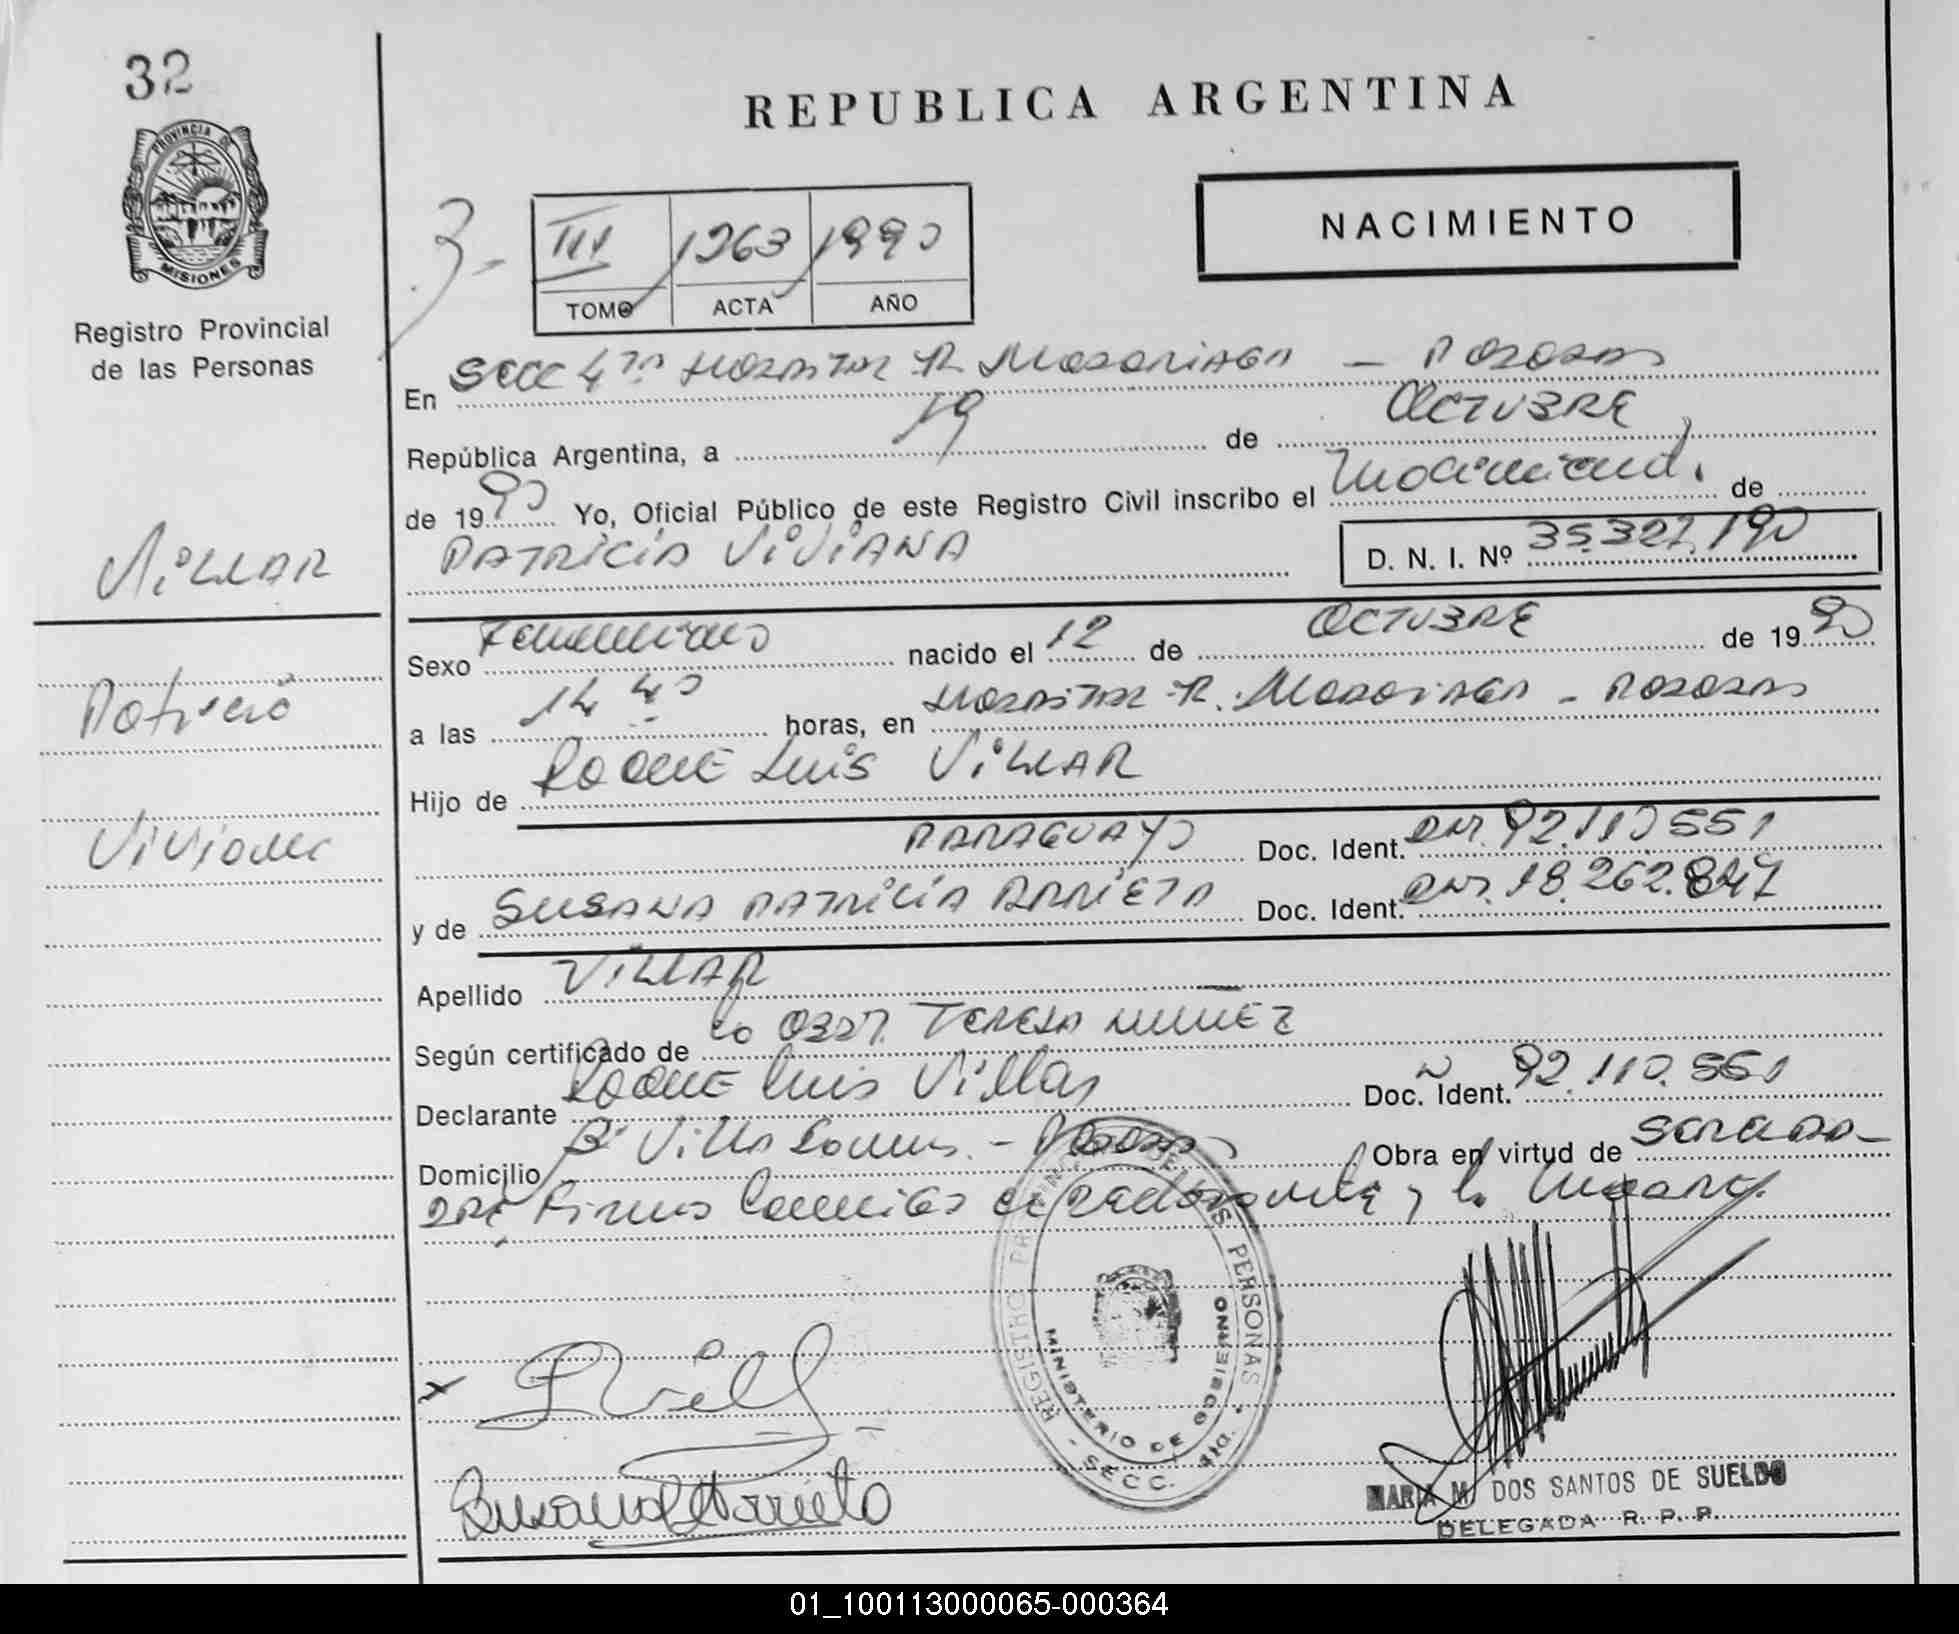 32
REPUBLICA ARGENTINA
PROVINCIA DE
MISIONES
Registro Provincial
de las Personas
NACIMIENTO
3-
III 1263 1990
TOMO ACTA AÑO
En SECC 4ta HOSPITAL R. MADARIAGA - POSADAS
República Argentina, a 19 de OCTUBRE
de 1990 Yo, Oficial Público de este Registro Civil inscribo el Nacimiento de
VILLAR
PATRICIA VIVIANA D. N. I. Nº 35.327.190
Sexo Femenino nacido el 12 de OCTUBRE de 1990
Patricia
a las 14 40 horas, en HOSPITAL R. MADARIAGA - POSADAS
Hijo de ROQUE LUIS VILLAR
Viviana
PARAGUAYO Doc. Ident. DNI. 92.110.551
y de SUSANA PATRICIA ARRIETA Doc. Ident. DNI. 18.262.847
Apellido VILLAR
Según certificado de la OBST. TERESA NUÑEZ
Declarante ROQUE Luis Villar Doc. Ident. 92.110.551
Domicilio Bº Villa - Posadas Obra en virtud de
Firman el declarante y la
REGISTRO PROVINCIAL DE LAS PERSONAS
MINISTERIO DE GOBIERNO
- SECC. 4ta.
x
Susana P Arrieta
MARIA M. DOS SANTOS DE SUELDO
DELEGADA R. P. P.
01_100113000065-000364